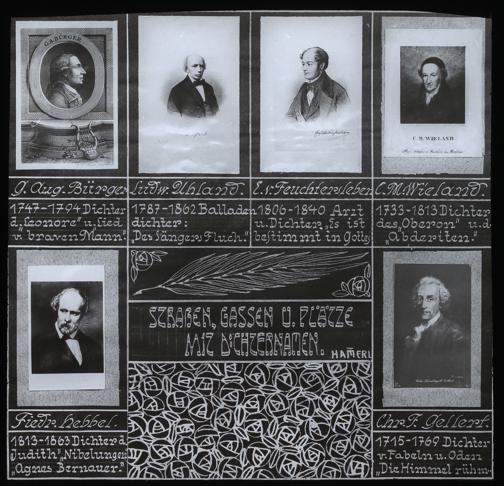 G.A.BÜRGER
C. M. WIELAND.
G. Aug. Bürger
Ludw. Uhland.
E. v. Feuchtersleben
C. M. Wieland.
1747-1794 Dichter
d. „Leonore" u. „Lied
v. braven Mann".
1787-1862 Balladen
dichter:
„Des Sängers Fluch."
1806-1840 Arzt
u. Dichter „Es ist
bestimmt in Gottes
1733-1813 Dichter
des „Oberon" u. d.
„Abderiten."
STRAßEN, GASSEN U. PLÄTZE
MIT DICHTERNAMEN.
HAMERL
Friedr. Hebbel.
1813-1863 Dichter d.
„Judith" „Nibelungen
„Agnes Bernauer."
Chr. F. Gellert.
1715-1769 Dichter
v. Fabeln u. Oden
„Die Himmel rühm-